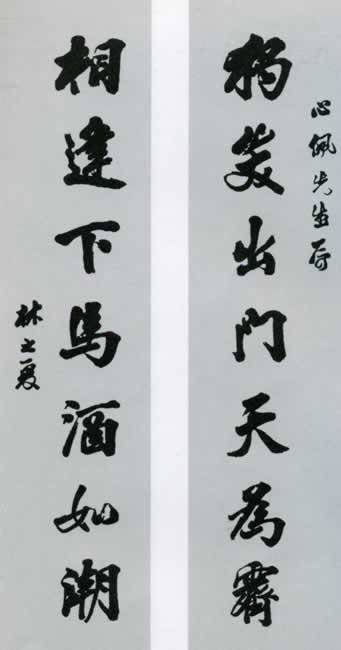 心佩先生
獨出門天為霽
相逢下馬酒如潮
林之夏